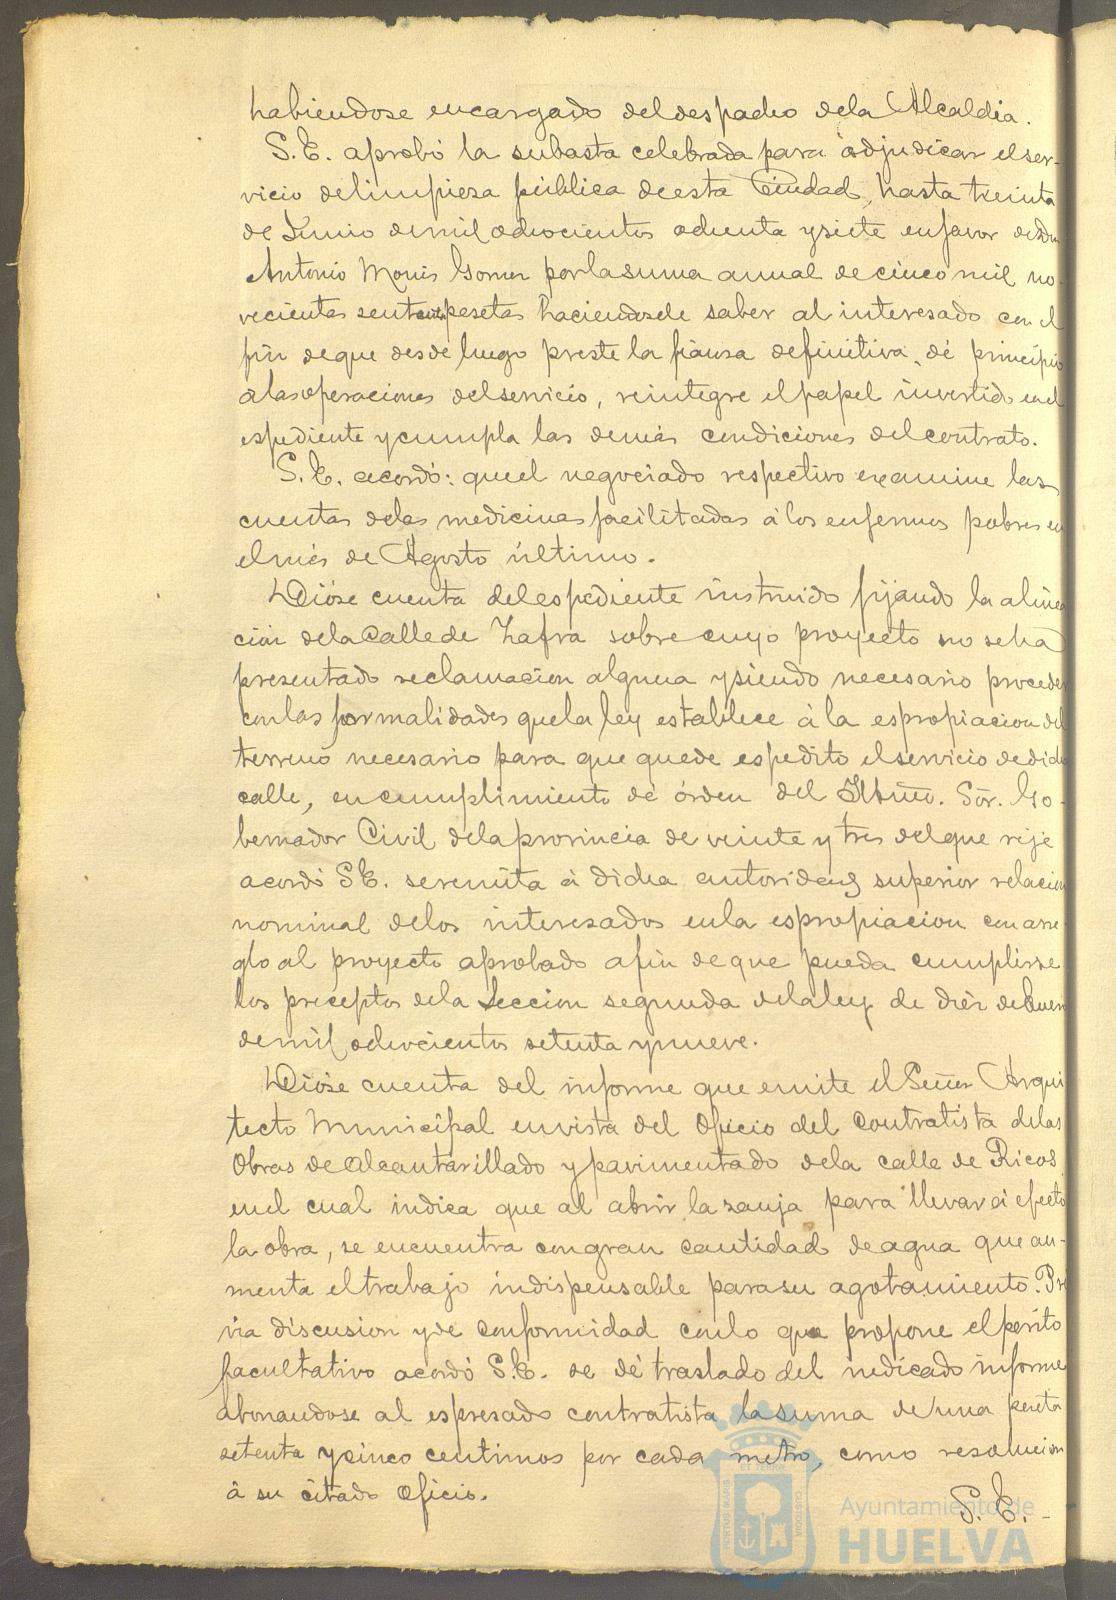 habiendose encargado del despacho de la Alcaldia.
S.E. aprobó la subasta celebrada para adjudicar el ser-
vicio de limpieza pública de esta Ciudad, hasta treinta
de Junio de mil ochocientos ochenta y siete en favor de
Antonio Gomez por la suma anual de cinco mil no-
vecientas pesetas haciendosele saber al interesado con el
fin de que desde luego preste la fianza definitiva, dé principio
a las operaciones del servicio, reintegre el papel invertido en el
espediente y cumpla las demás condiciones del contrato.
S.E. acordó: que el negociado respectivo examine las
cuentas de las medicinas facilitadas á los enfermos pobres en
el més de Agosto último.
Dióse cuenta del espediente instruido fijando la alinea
ción de la Calle de Zafra sobre cuyo proyecto no se ha
presentado reclamacion alguna y siendo necesario proceder
con las formalidades que la ley establece á la espropiacion del
terreno necesario para que quede espedito el servicio de dicha
calle, en cumplimiento de órden del Iltmo. Sör. Go-
bernador Civil de la provincia de veinte y tres del que rije
acordó S.E. se remita á dicha autoridad superior relacion
nominal de los interesados en la espropiacion con arre-
glo al proyecto aprobado a fin de que pueda cumplirse
los preceptos de la Seccion segunda de la ley de diez de Enero
de mil ochocientos setenta y nueve.
Dióse cuenta del informe que emite el Señor Arqui
tecto Municipal en vista del oficio del contratista de las
Obras de Alcantarillado y pavimentado de la calle de Ricos,
en el cual indica que al abrir la zanja para llevar á efecto
la obra, se encuentra con gran cantidad de agua que au-
menta el trabajo indispensable para su agotamiento. Pré
via discusion y de conformidad con lo que propone el périto
facultativo acordó S.E. se dé traslado del indicado informe
abonandose al espresado contratista la suma de una peseta
setenta y cinco centimos por cada metro, como resolucion
á su citado oficio.
S. E. -
Ayuntamiento de
HUELVA